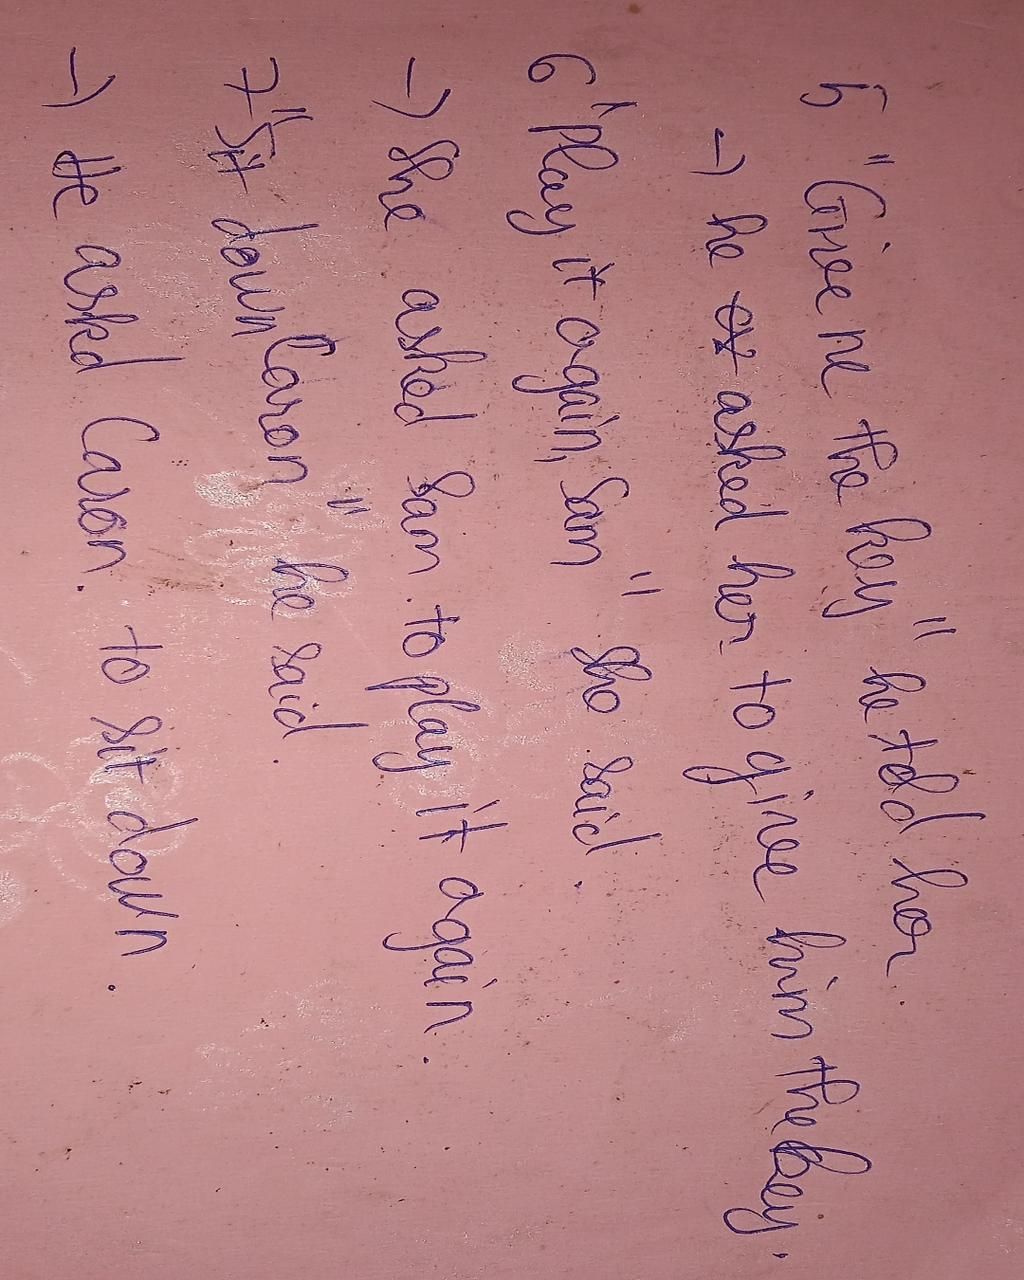 5 "Give me the key" he told her.
→ he asked her to give him the key.
6 "Play it again, Sam" she said.
→ She asked Sam to play it again.
7 "Sit down Caron" he said.
→ He asked Caron. to sit down.